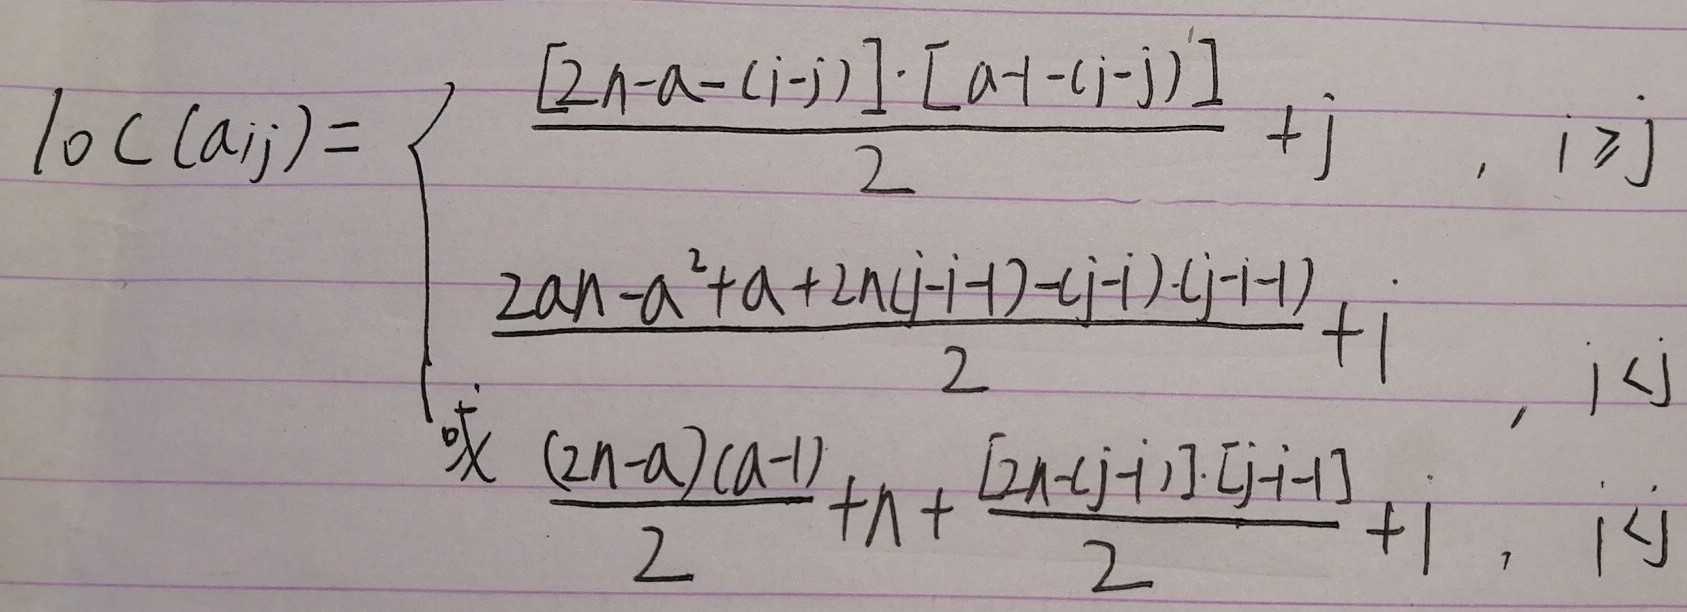 loc(aij)= { [2n-a-(i-j)]·[a-1-(i-j)] / 2 + j , i≥j
2an-a²+a+2n(j-i-1)-(j-i)·(j-i-1) / 2 + i , i<j
或 (2n-a)(a-1) / 2 + n + [2n-(j-i)]·[j-i-1] / 2 + i , i<j